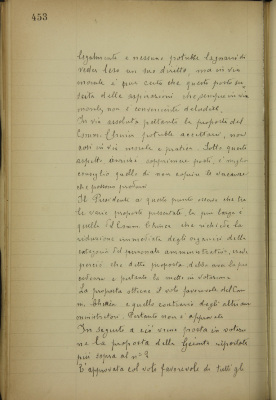 453
legalmente e nessuno potrebbe lagnarsi di
veder leso un suo diritto, ma in via
morale è pur certo che questi posti
delle aspirazioni che, sempre in via
morale, non è conveniente deludere.
In via assoluta pertanto la proposta del
Comm. potrebbe accettarsi, non
così in via morale e pratica. Sotto questo
aspetto anziché sopprimere posti, è miglior
consiglio quello di non coprire le vacanze
che possono prodursi
Il Presidente a questo punto osserva che tra
le varie proposte presentate, la più larga è
quella del Comm. che richiede la
riduzione immediata degli organici delle
categorie del personale amministrativo,
perciò che detta proposta debba avere la pre
cedenza e pertanto la mette in votazione.
La proposta ottiene il voto favorevole del Com
m. e quello contrario degli altri am
ministratori. Pertanto non è approvata
In seguito a ciò viene posta in votazio
ne la proposta della Giunta riportata
più sopra al n° 2
È approvata col voto favorevole di tutti gli